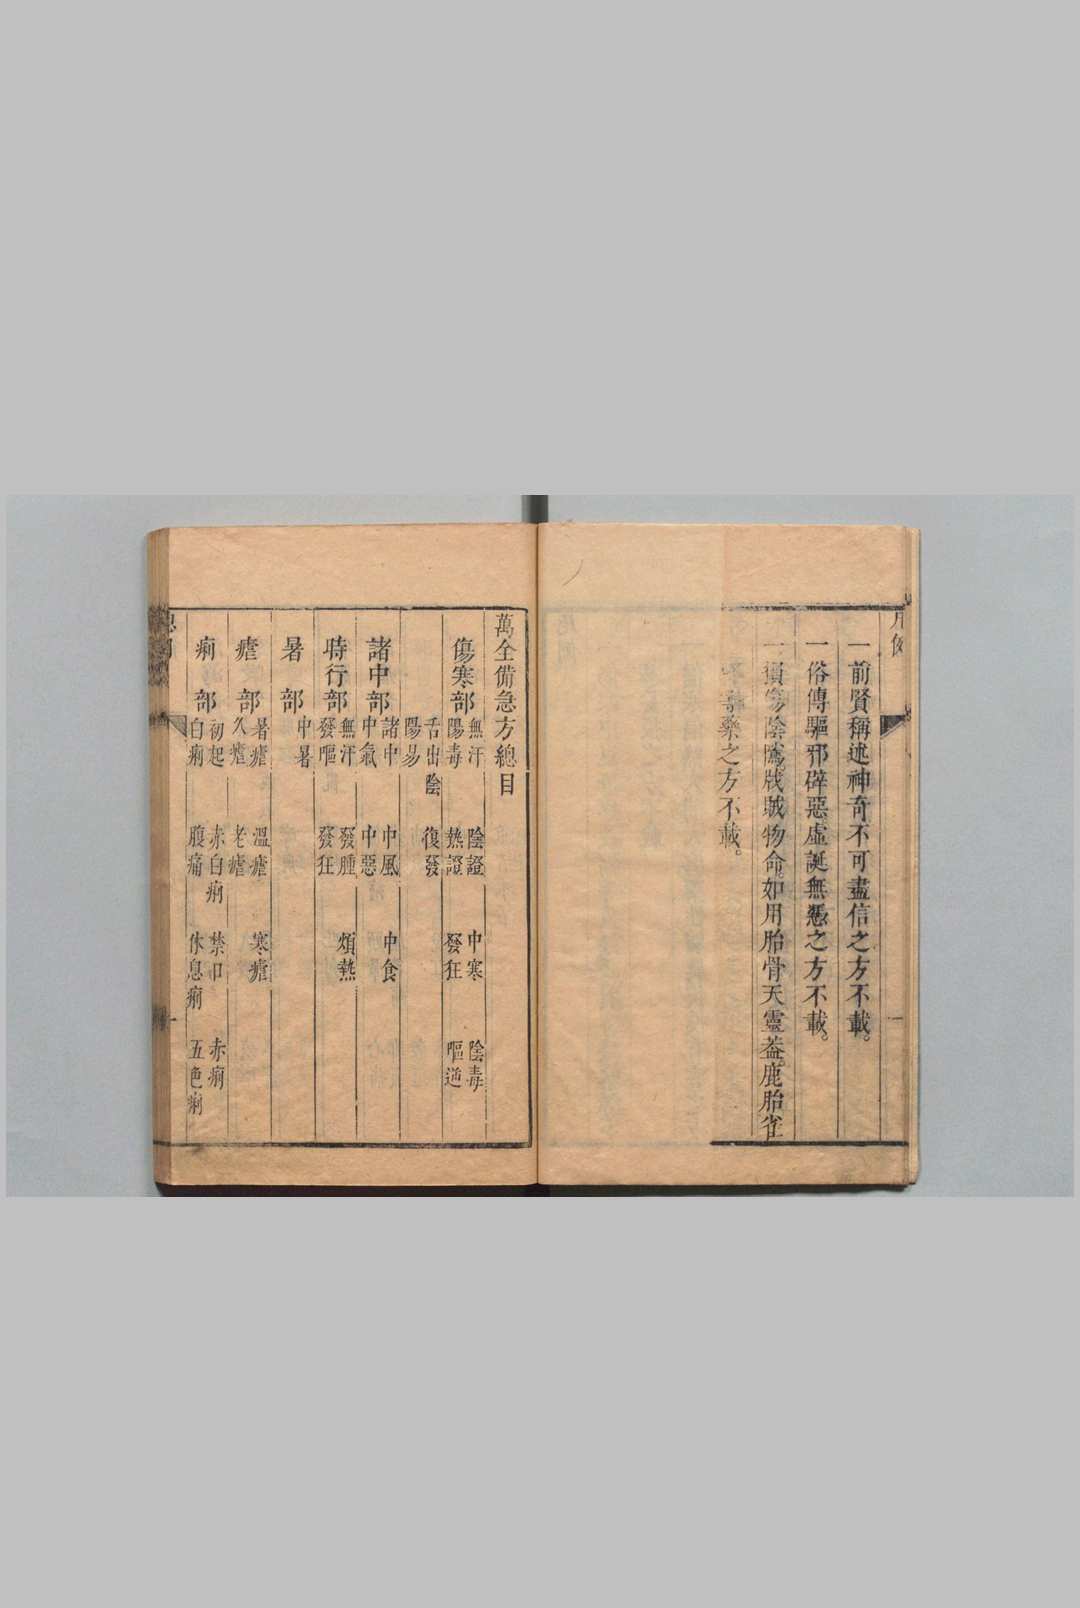 一前賢稱述神奇不可盡信之方不載。
一俗傳驅邪辟惡虛誕無憑之方不載。
一損寡陰隲。戕賊物命。如用胎骨天靈葢。鹿胎雀
藥之方不載。
萬全備急方總目
傷寒部
無汗 陰證 中寒 陰毒
陽毒 熱證 發狂 嘔逆
舌出 陰 復發
陽易
諸中部
諸中 中風 中食
中氣 中惡
時行部
無汗 發腫 煩熱
發嘔 發狂
暑部
中暑
瘧部
暑瘧 溫瘧 寒瘧
久瘧 老瘧
痢部
初起 赤白痢 禁口 赤痢
白痢 腹痛 休息痢 五色痢